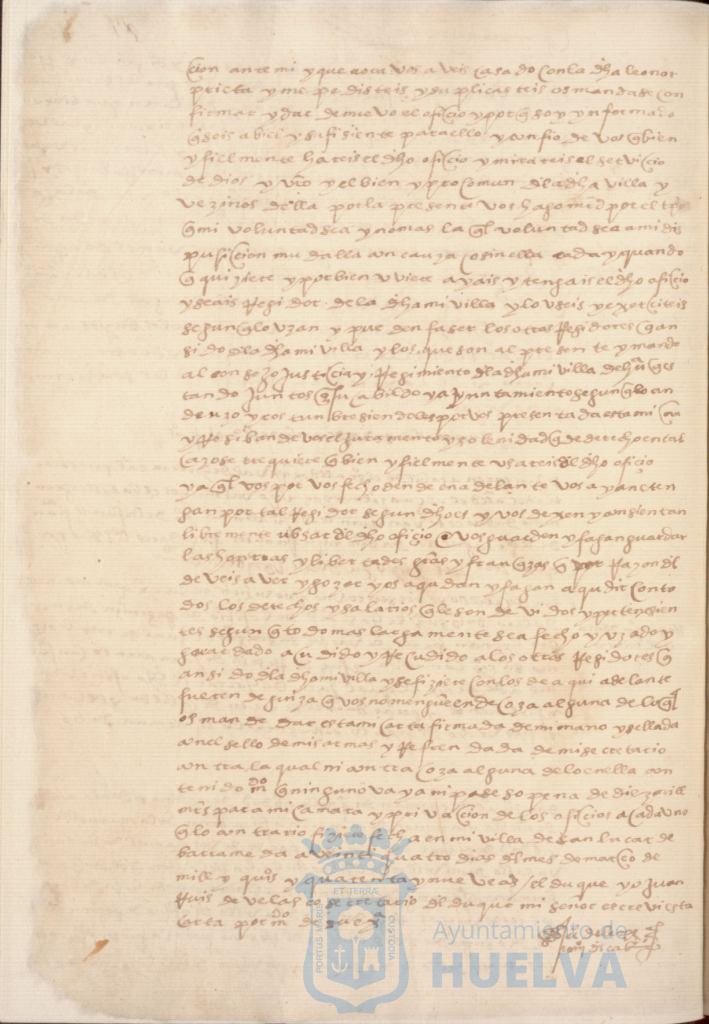 cion ante mi y que aora vos aveis casado con la dha leonor
prieta y me pedisteis y suplicasteis os mandase con
firmar y dar de nuevo el oficio y porq soy ynformado
q sois abil y sufisiente para ello y confio de vos q bien
y fielmente hareis el dho oficio y mirareis el servicio
de dios y mio y el bien y procomun dla dha villa y
vezinos della por la presente vos hago md por el tpo
q mi voluntad sea y no mas la ql voluntad sea a mi dis
pusicion mudalla con cauza o sin ella cada y quando
q quiziere y por bien uviere ayais y tengais el dho oficio
y seais Regidor de la dha mi villa y lo useis y exerciteis
segun q lo uzan y pueden faser los otros Regidores q an
sido dla dha mi villa y los que son al presente y mando
al consejo justicia y Regimiento dla dha mi villa de
tando juntos en su cabildo y ayuntamiento segun q lo an
de uzo y costunbre siendoles por vos presentada esta mi
y Resiban de vos el juramento y solenidad q de derecho en tal
cazo se requiere q bien y fielmente usareis dl dho oficio
y a ql vos por vos fecho dende en adelante vos ayan e ten
gan por tal Regidor segun dho es y vos dexen y consientan
libremente ussar dl dho oficio e vos guarden y fagan guardar
las honrras y libertades gras y franquezas q por Razon dl
deveis aver y gozar y os acudan y fagan acudir con to
dos los derechos y salarios q le son devidos y pertenesien
tes segun q todo mas largamente sea fecho y uzado y
guardado acudido y Recudido a los otros Regidores q
an sido dla dha mi villa y se fiziere con los de aqui adelante
fueren de guiza q vos no mengue ende coza alguna de lo ql
os mande dar esta mi carta firmada de mi mano y sellada
con el sello de mis armas y Refrendada de mi secretario
contra la qual ni contra coza alguna de lo en ella con
tenido mdo q ninguno vaya ni pase so pena de diez mill
mrs para mi camara y privacion de los oficios a cada uno
q lo contrario fiziere fecha en mi villa de san lucar de
barrameda a veinti quatro dias dl mes de março de
mill y quis y quarenta y nueve as / el duque yo juan
Ruis de velasco secretario dl duque mi señor escrevi esta
carta por mdo de su exa
PORTUS MARIS
ET TERRÆ
CUSTODIA
Ayuntamiento de
HUELVA